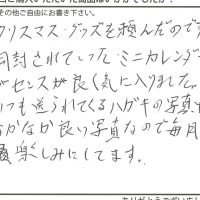 その他ご自由にお書き下さい。
クリスマス・グッズを頼んだので
同封されていたミニカレンダー
がセンスが良く気に入りました。
いつも送られてくるハガキの写真も
なかなか良い写真なので毎月
楽しみにしてます。
ありがとうござい